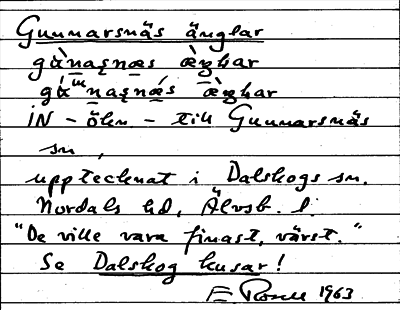 Gunnarsnäs änglar
gὰnasnæs æ̀ŋlar
gά nasnæs æ̀ŋlar
IN - ökn - till Gunnarsnäs
sn,
upptecknat i Dalskogs sn.
Nordals hd, Älvsb. l.
"De ville vara finast, värst."
Se Dalskog kusar!
1963